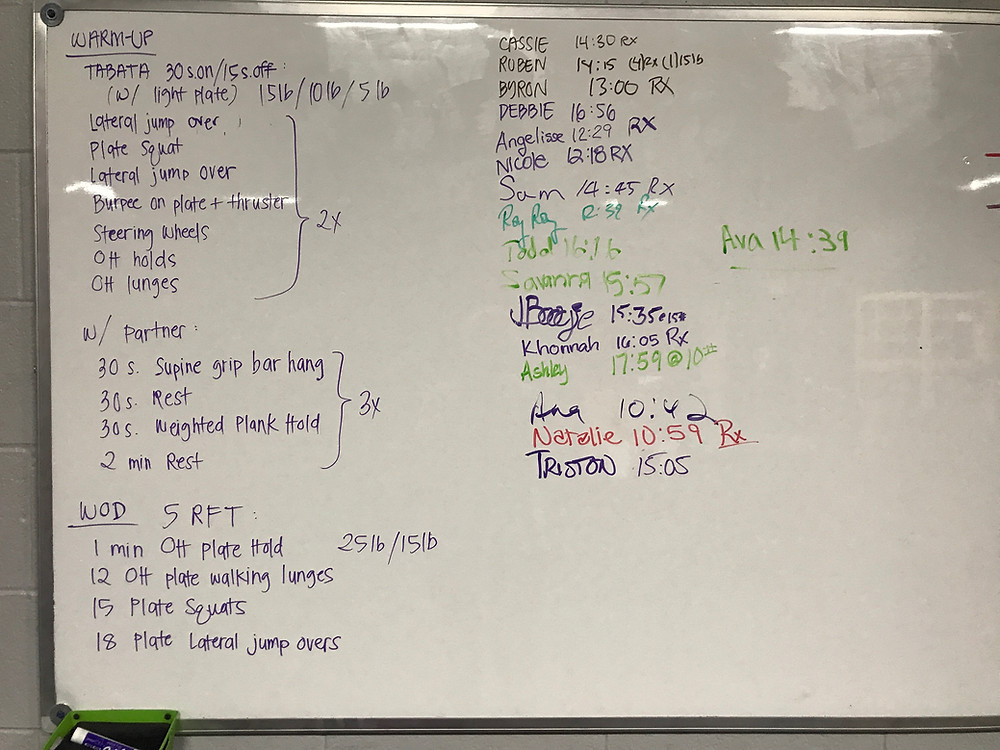 WARM-UP
TABATA 30s.on/15s.off:
(w/ light plate) 15lb/10lb/5lb
Lateral jump over
Plate Squat
Lateral jump over
Burpee on plate + thruster
Steering Wheels
OH holds
OH lunges
2x
w/ partner:
30 s. Supine grip bar hang
30 s. Rest
30 s. Weighted Plank Hold
2 min Rest
3x
WOD 5 RFT:
1 min OH Plate Hold 25lb/15lb
12 OH plate walking lunges
15 Plate Squats
18 Plate Lateral jump overs
CASSIE 14:30 Rx
RUBEN 14:15 (4)Rx (1)15lb
BYRON 13:00 RX
DEBBIE 16:56
Angelisse 12:29 RX
Nicole 12:18 RX
Sam 14:45 Rx
Ray Ray Rx
Todd 16:16
Savanna 15:57
15:35@15#
Khonnah 16:05 Rx
Ashley 17:59@10#
Ana 10:42
Natalie 10:59 Rx
TRISTON 15:05
Ava 14:39